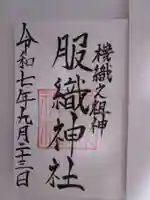 機織之祖神
服織神社
令和七年九月二十三日